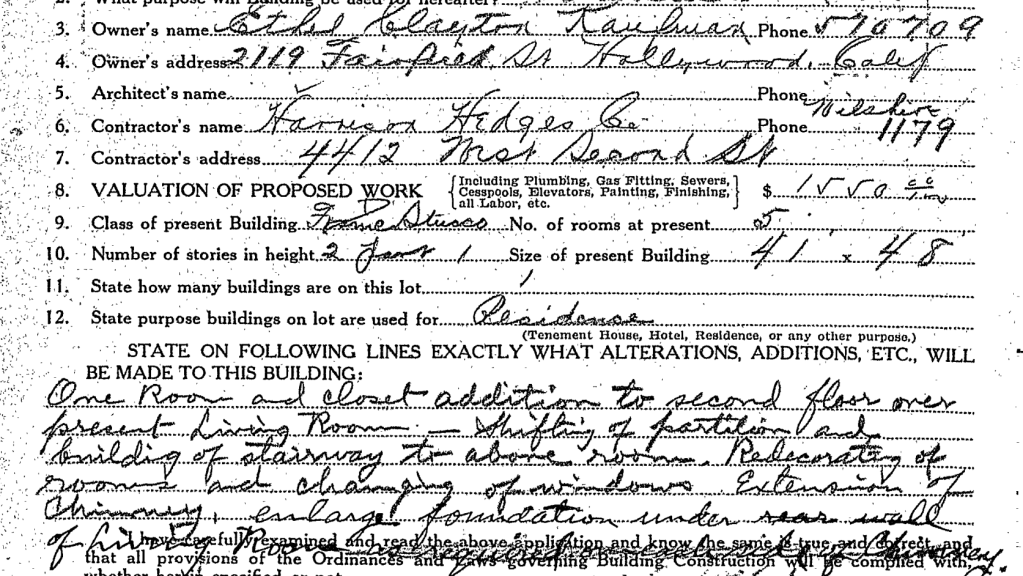 2. What purpose will Building be used for hereafter?
3. Owner's name Ethel Clayton Kaufman Phone 590709
4. Owner's address 2119 Fairfield St Hollywood. Calif
5. Architect's name Phone
6. Contractor's name Harrison Hedges Co. Phone Wilshire 1179
7. Contractor's address 4412 West Second St
8. VALUATION OF PROPOSED WORK {Including Plumbing, Gas Fitting, Sewers, Cesspools, Elevators, Painting, Finishing, all Labor, etc.} $ 1550 00/100
9. Class of present Building Frame Stucco No. of rooms at present 5
10. Number of stories in height 2 1 Size of present Building 41 x 48
11. State how many buildings are on this lot 1
12. State purpose buildings on lot are used for Residence
(Tenement House, Hotel, Residence, or any other purpose.)
STATE ON FOLLOWING LINES EXACTLY WHAT ALTERATIONS, ADDITIONS, ETC., WILL
BE MADE TO THIS BUILDING:
One Room and closet addition to second floor over
present Living Room — Shifting of partition and
buildig of stairway to above room. Redecorating of
rooms and changing of windows Extension of
Chimney, enlarge foundation under rear wall
of Living Room as required
I have carefully examined and read the above application and know the same is true and correct, and
that all provisions of the Ordinances and Laws governing Building Construction will be complied with,
whether herein specified or not.